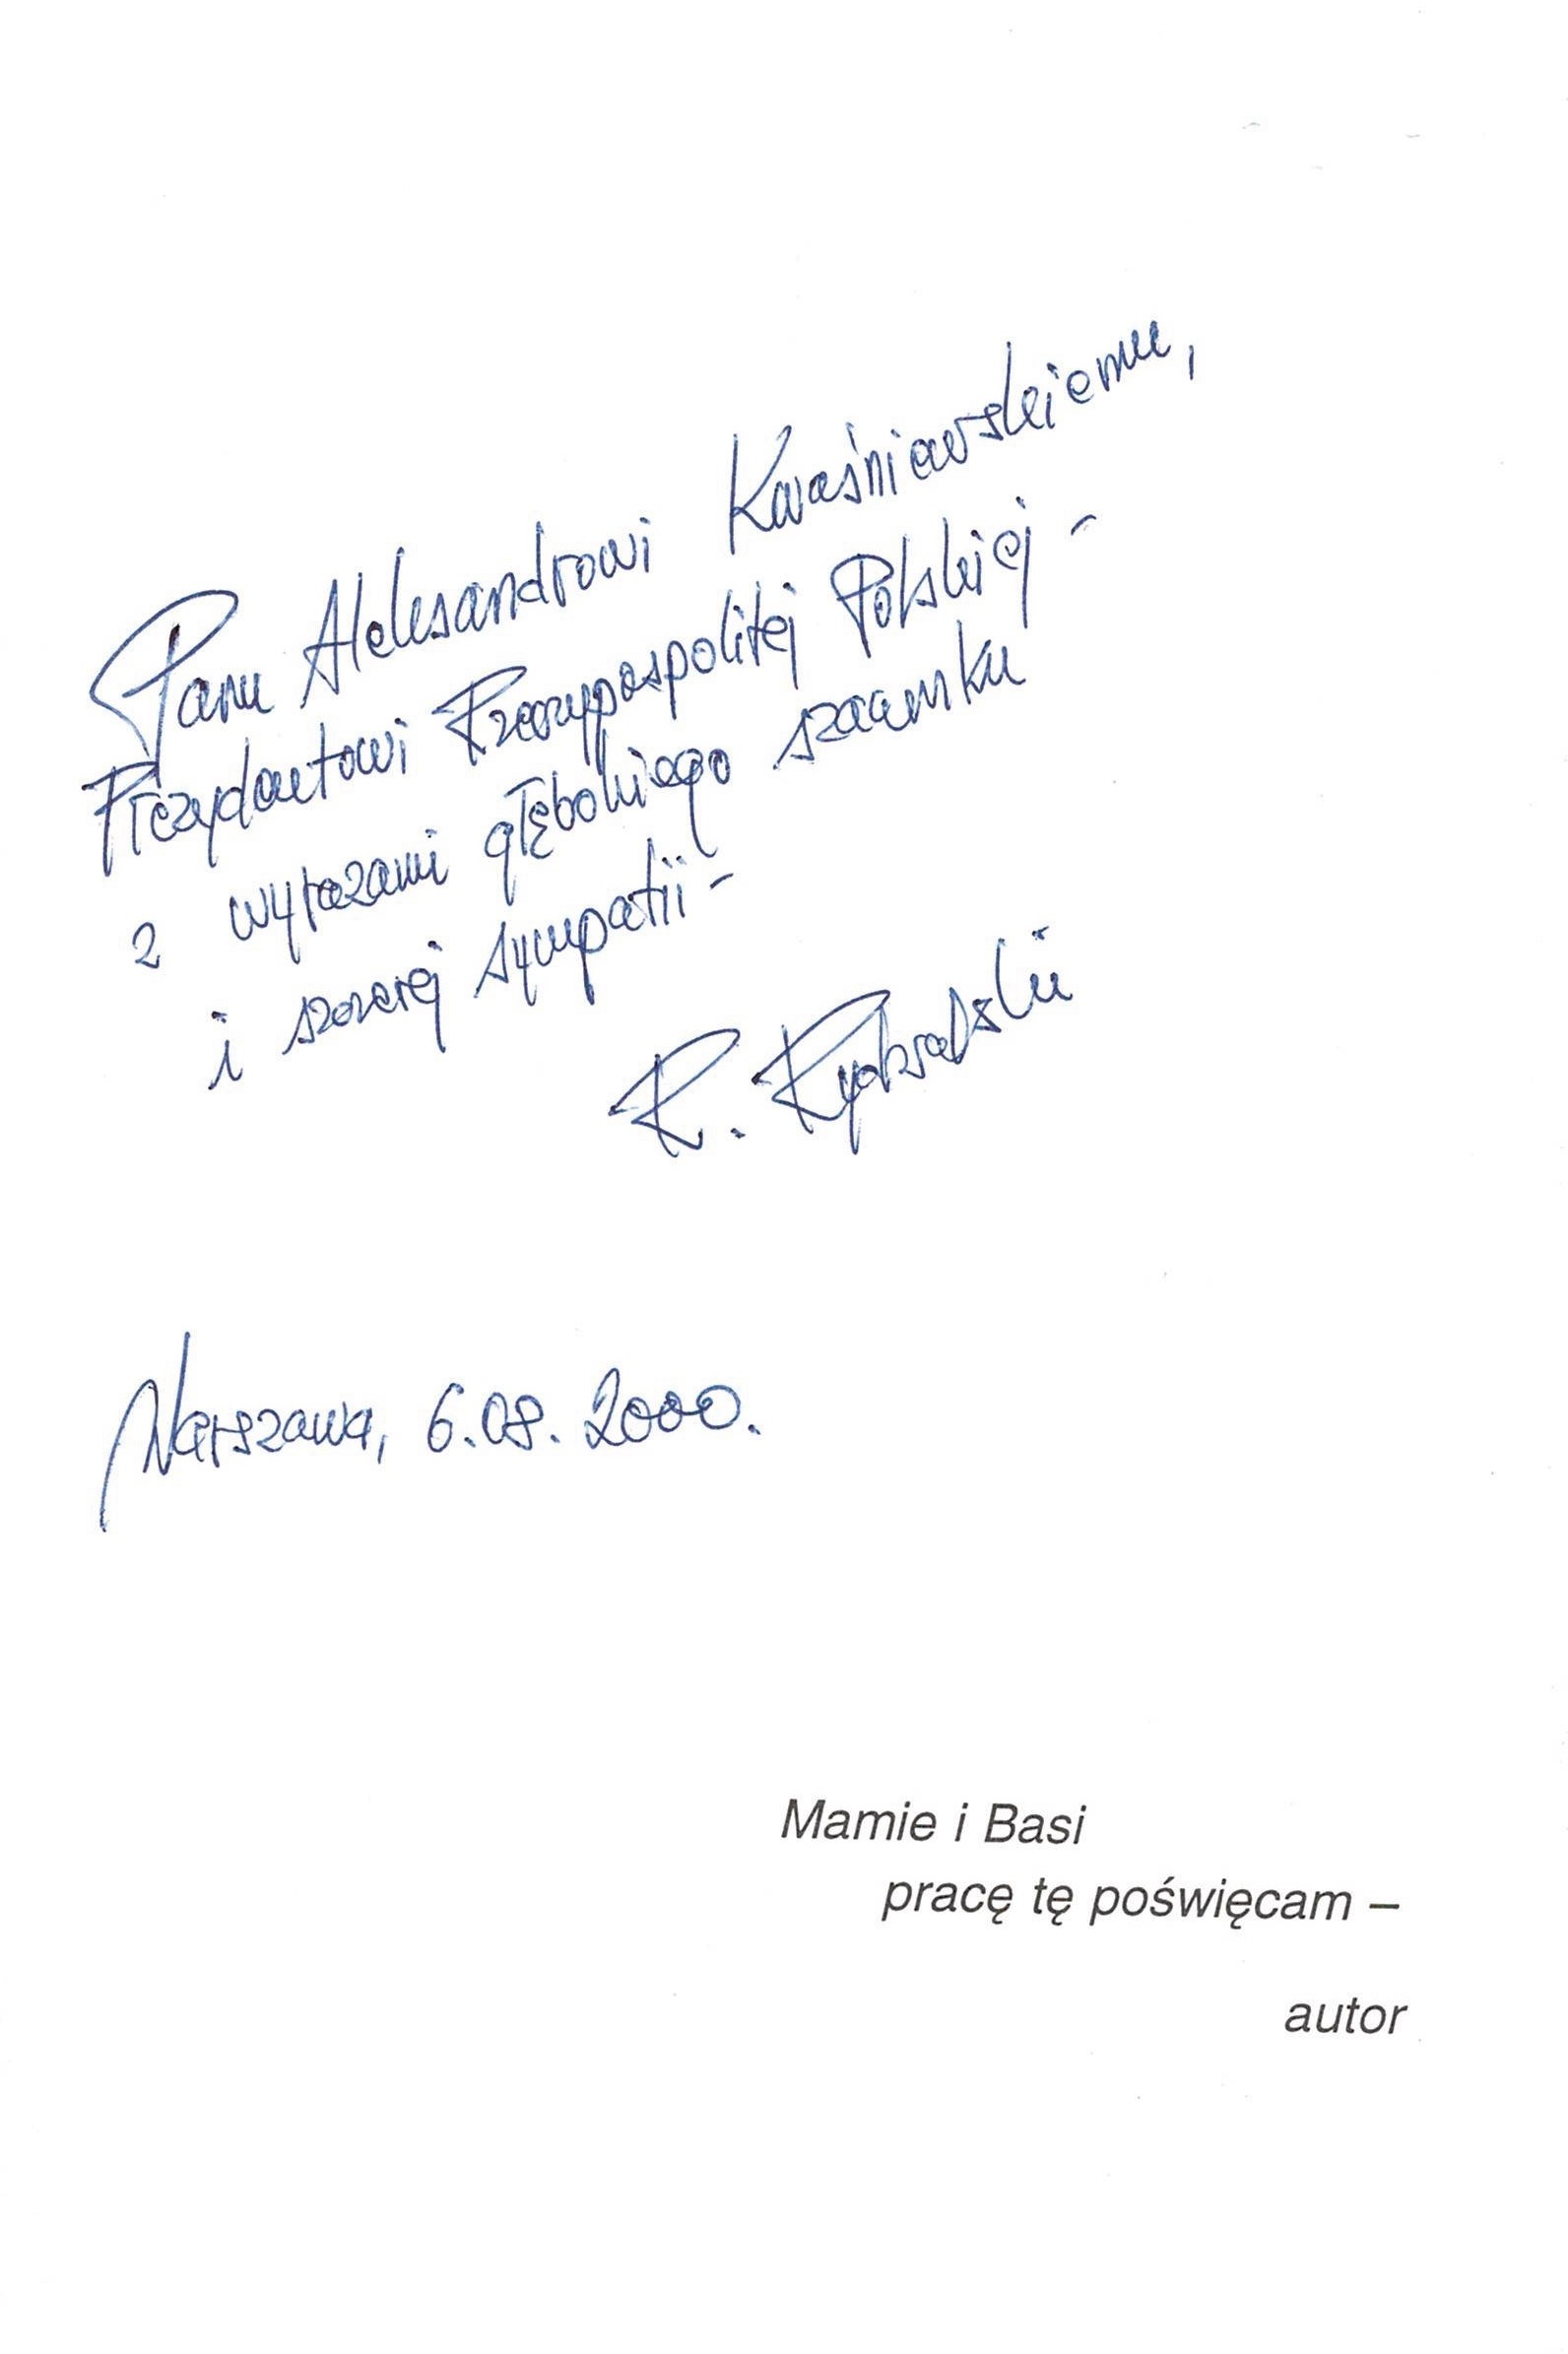 Panu Aleksandrowi Kwaśniewskiemu,
Prezydentowi Rzeczypospolitej Polskiej -
z wyrazami głębokiego szacunku
i szczerej sympatii -
R.
Warszawa, 6.08.2000.
Mamie i Basi
pracę tę poświęcam –
autor